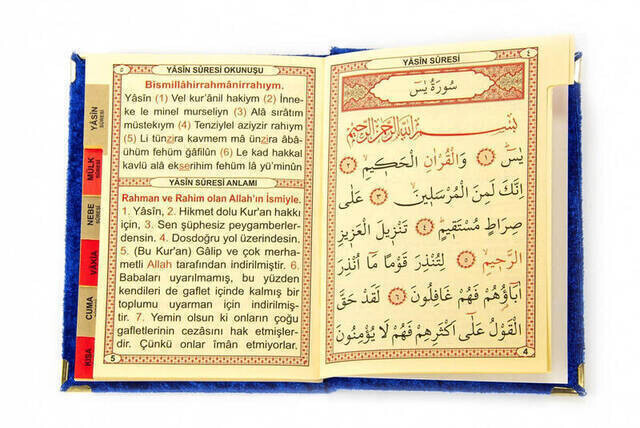 YÂSİN SÛRESİ OKUNUŞU
Bismillâhirrahmânirrahıym.
Yâsîn (1) Vel kur'ânil hakiym (2) İnne-
ke le minel murseliyn (3) Alâ sırâtım
müstekıym (4) Tenziylel aziyzir rahıym
(5) Li tünzira kavmem mâ ünzira âbâ-
ühüm fehüm ğâfilûn (6) Le kad hakkal
kavlü alâ ekserihim fehüm lâ yü'minûn
YÂSİN SÛRESİ ANLAMI
Rahman ve Rahim olan Allah'ın İsmiyle.
1. Yâsîn, 2. Hikmet dolu Kur'an hakkı
için, 3. Sen şüphesiz peygamberler-
densin. 4. Dosdoğru yol üzerindesin.
5. (Bu Kur'an) Gâlip ve çok merha-
metli Allah tarafından indirilmiştir. 6.
Babaları uyarılmamış, bu yüzden
kendileri de gaflet içinde kalmış bir
toplumu uyarman için indirilmiş-
tir. 7. Yemin olsun ki onların çoğu
gafletlerinin cezasını hak etmişler-
dir. Çünkü onlar îman etmiyorlar.
5
YÂSİN
SÛRESİ
MÜLK
SÛRESİ
NEBE
SÛRESİ
VÂKIA
CUMA
KISA
YÂSİN SÛRESİ
٤
سُورَةُ يٰسٓ
بِسْــــمِ اللّٰهِ الرَّحْمٰنِ الرَّحِيمِ
يٰسٓ ﴿١﴾ وَالْقُرْاٰنِ الْحَكِيمِ ﴿٢﴾
اِنَّكَ لَمِنَ الْمُرْسَلِينَ ﴿٣﴾ عَلٰى
صِرَاطٍ مُسْتَقِيمٍ ﴿٤﴾ تَنْزِيلَ الْعَزِيزِ
الرَّحِيمِ ﴿٥﴾ لِتُنْذِرَ قَوْمًا مَٓا اُنْذِرَ
اٰبَٓاؤُهُمْ فَهُمْ غَافِلُونَ ﴿٦﴾ لَقَدْ حَقَّ
الْقَوْلُ عَلٰٓى اَكْثَرِهِمْ فَهُمْ لَا يُؤْمِنُونَ
4